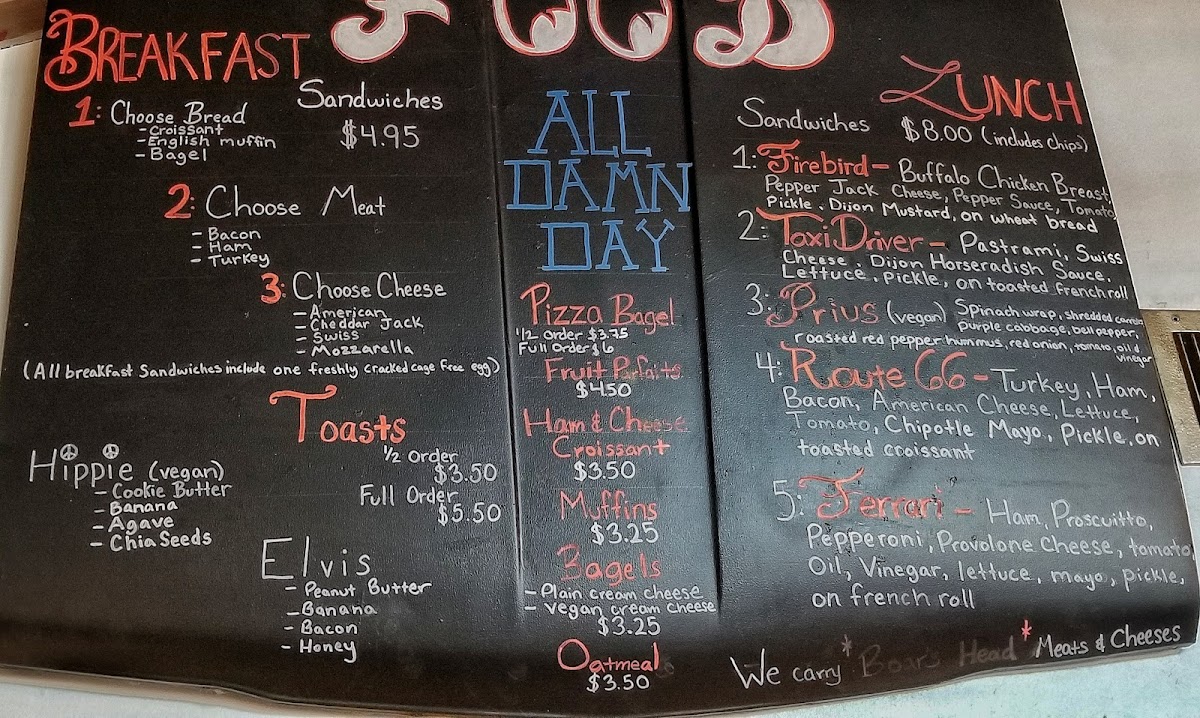 FOOD
BREAKFAST
Sandwiches
$4.95
1: Choose Bread
- Croissant
- English muffin
- Bagel
2: Choose Meat
- Bacon
- Ham
- Turkey
3: Choose Cheese
- American
- Cheddar Jack
- Swiss
- Mozzarella
(All breakfast Sandwiches include one freshly cracked cage free egg)
Toasts
1/2 Order
$3.50
Full Order
$5.50
Hippie (vegan)
- Cookie Butter
- Banana
- Agave
- Chia Seeds
Elvis
- Peanut Butter
- Banana
- Bacon
- Honey
ALL
DAMN
DAY
Pizza Bagel
1/2 order $3.75
Full Order $6
Fruit Parfaits
$4.50
Ham & Cheese
Croissant
$3.50
Muffins
$3.25
Bagels
- Plain cream cheese
- Vegan cream cheese
$3.25
Oatmeal
$3.50
LUNCH
Sandwiches $8.00 (includes chips)
1: Firebird - Buffalo Chicken Breast,
Pepper Jack Cheese, Pepper Sauce, Tomato
Pickle, Dijon Mustard, on wheat bread
2: Taxi Driver - Pastrami, Swiss
Cheese, Dijon Horseradish Sauce,
Lettuce, Pickle, on toasted french roll
3: Prius (vegan) Spinach wrap, shredded carrots
purple cabbage, bell pepper
roasted red pepper hummus, red onion, tomato, oil &
vinegar
4: Route 66 - Turkey, Ham,
Bacon, American Cheese, Lettuce,
Tomato, Chipotle Mayo, Pickle, on
toasted croissant
5: Ferrari - Ham, Proscuitto,
Pepperoni, Provolone Cheese, tomato,
Oil, Vinegar, lettuce, mayo, pickle,
on french roll
We carry *Boar's Head* Meats & Cheeses